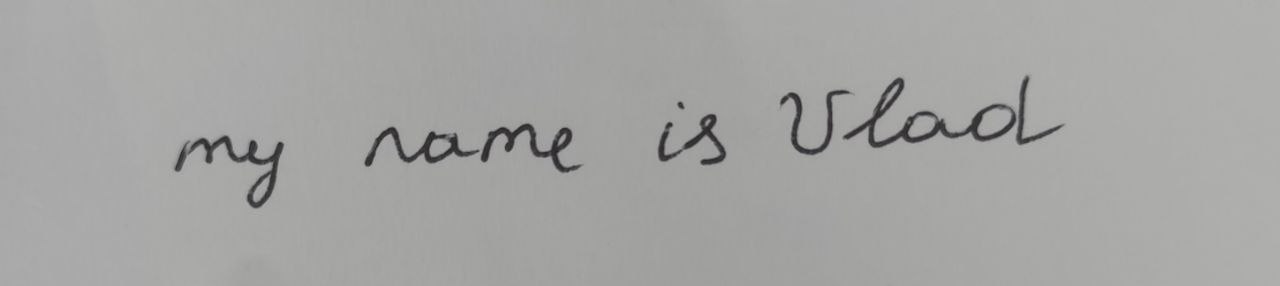 my name is Vlad